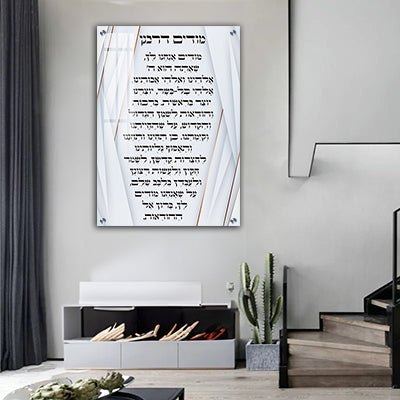 מודים דרבנן
מודים אנחנו לך,
שאתה הוא ה'
אלהינו ואלהי אבותינו,
אלהי כל-בשר, יוצרנו
יוצר בראשית. ברכות
והודאות לשמך הגדול
והקדוש, על שהחייתנו
וקימתנו. כן תחינו ותקימנו
ותאסוף גליותינו
לחצרות קדשך, לשמר
חקיך ולעשות רצונך
ולעבדך בלבב שלם,
על שאנחנו מודים
לך, ברוך אל
ההודאות.